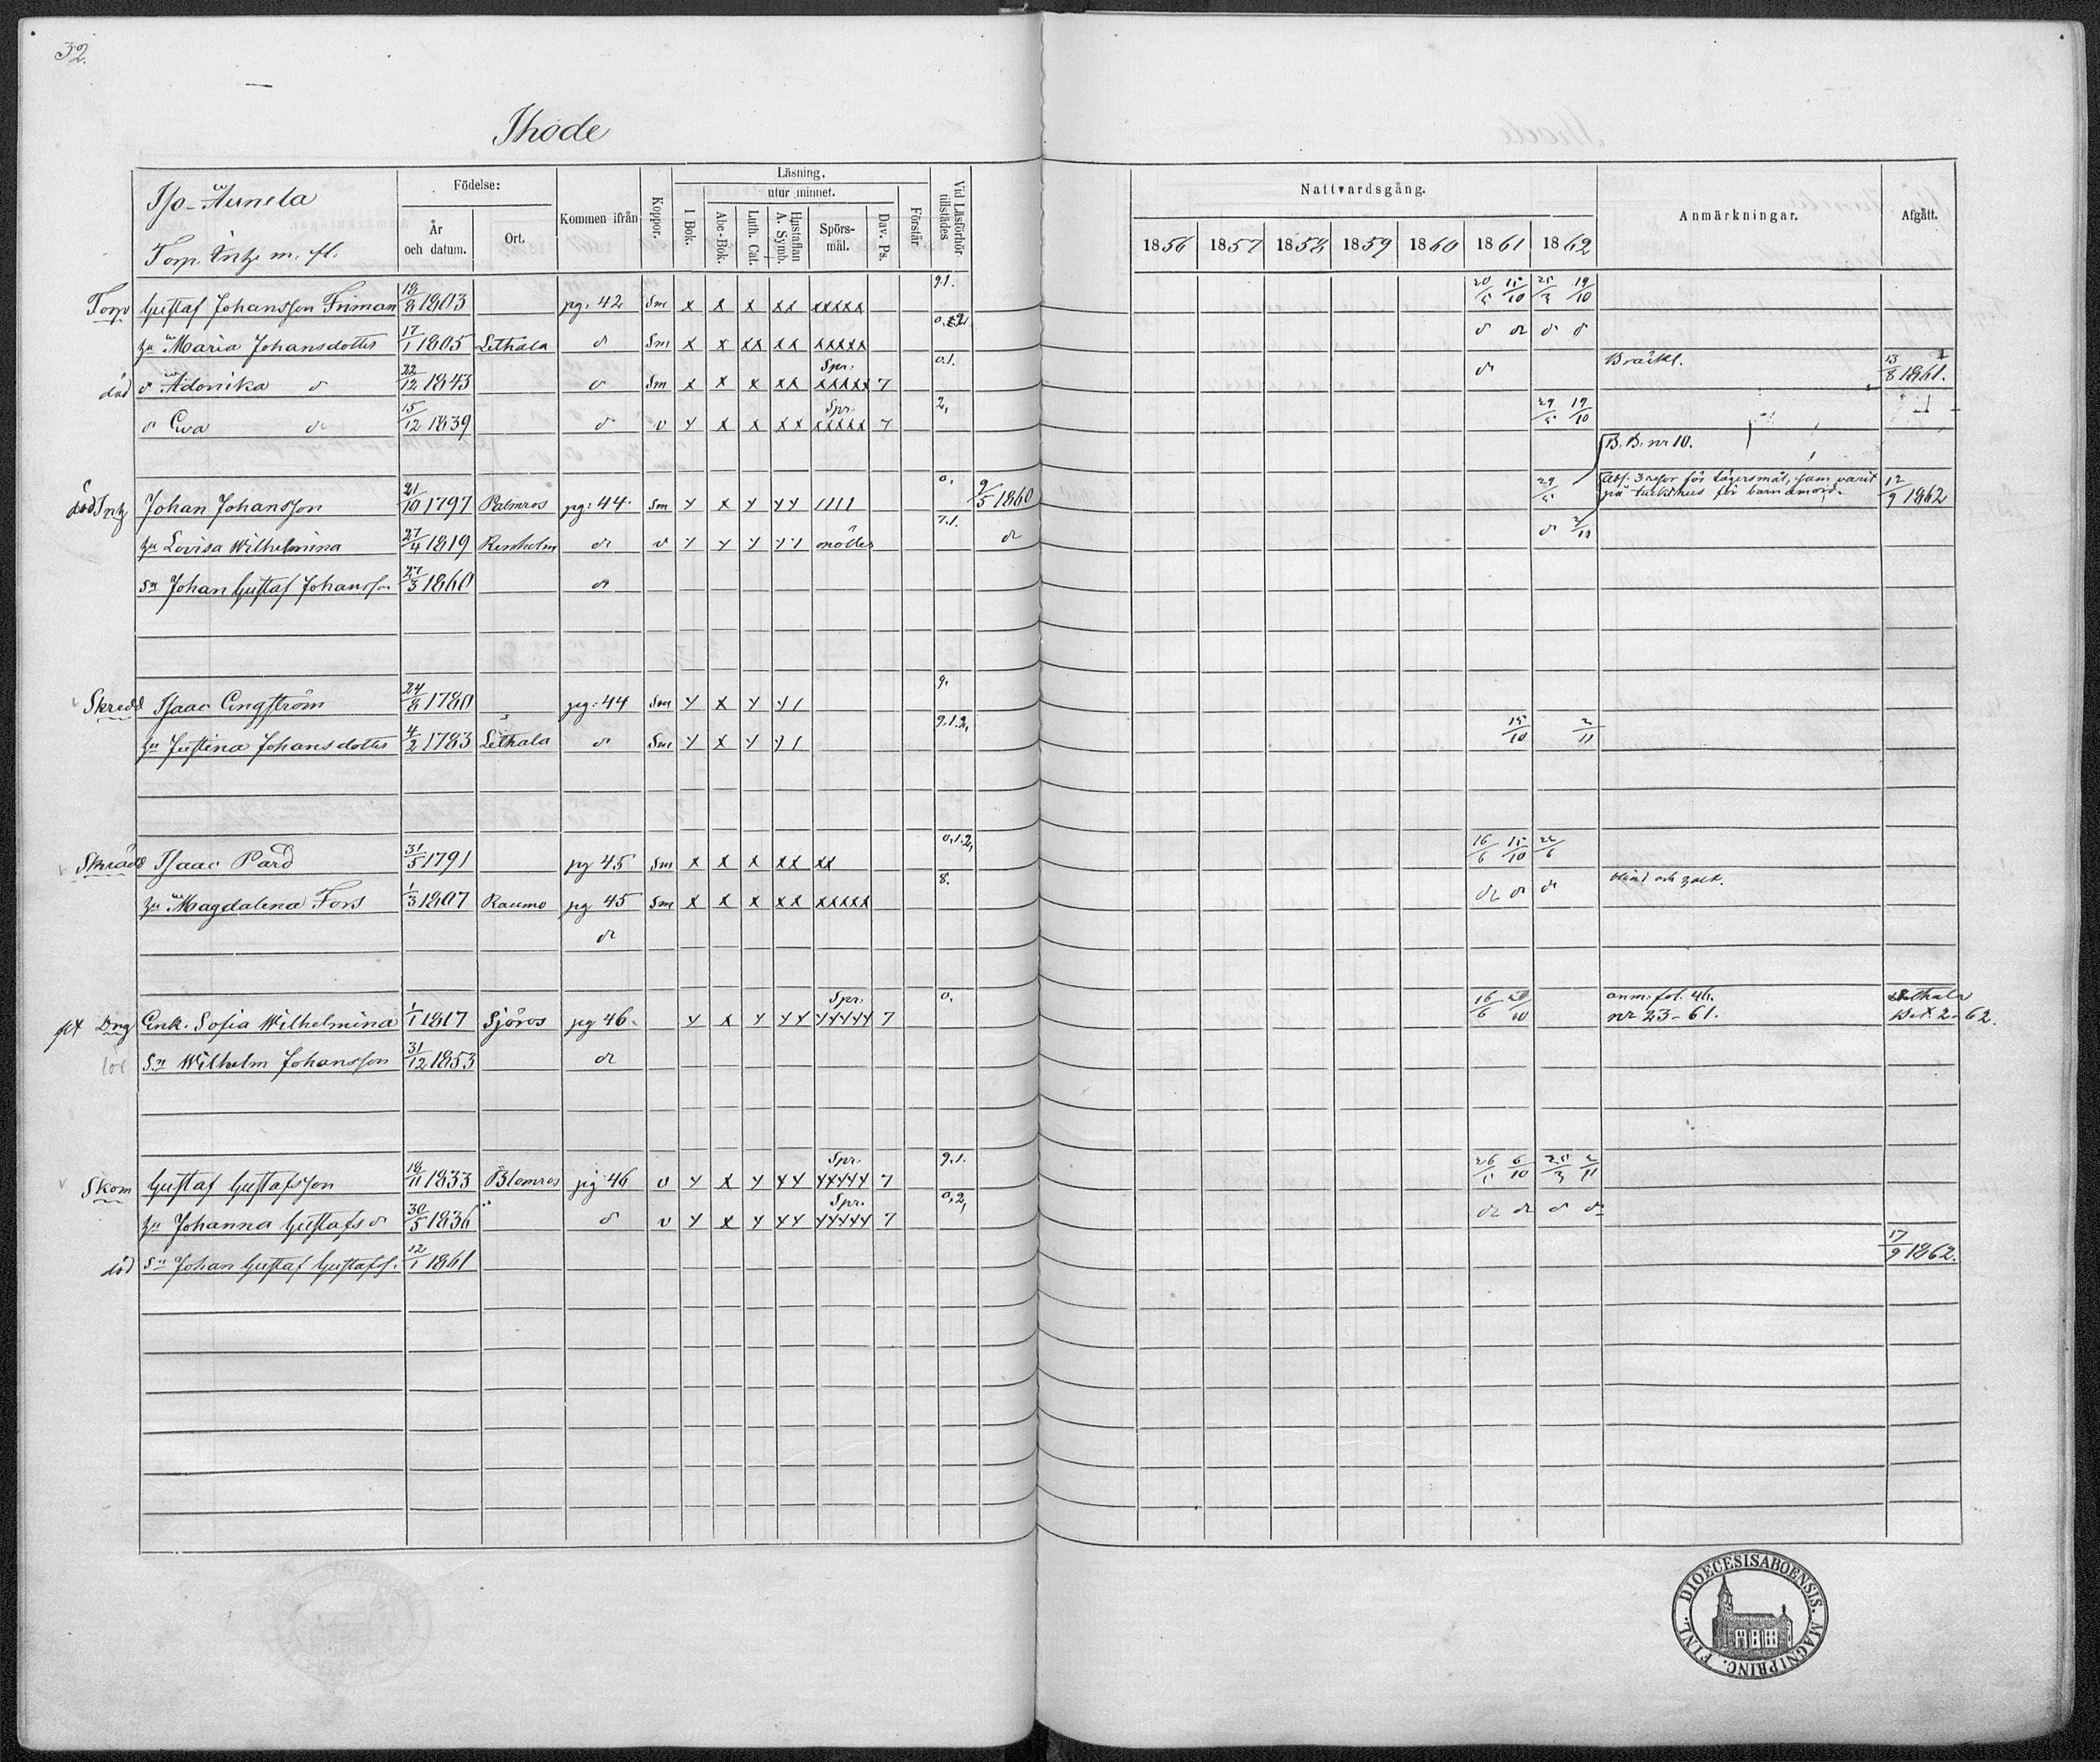 32.
Ihode
Iso-Aunela
Torp. Inhs m. fl.
Födelse:
År och datum.
Ort.
Kommen ifrån
Koppor.
Läsning,
I Bok.
utur minnet.
Abc-Bok.
Luth. Cat.
Hustaflan A. Symb.
Spörs-mål.
Dav. Ps.
Förstår
Vid Läsförhör tillstädes
Nattvardsgång.
1856 1857 1858 1859 1860 1861 1862
Anmärkningar.
Afgått.
Torp Gustaf Johansson Friman 18/8 1803 pg. 42 Sm x x x xx xxxxx 9.1. 20/5 15/10 25/3 19/10
hu Maria Johansdotter 17/1 1805 Lethala d Sm x x xx xx xxxxx
död d Adonika d 22/12 1843 d Sm x x x xx Spr. xxxxx 7 0.1. d 13/8 1861.
d Ewa d 15/12 1839 d v x x x xx Spr. xxxxx 7 2, 29/5 19/10
B. B. nr 10.
död Johan Johansson 21/10 1797 Palmros pg. 44. Sm x x x xx 1111 0, 9/5 1860 29/5 abs. 3 resor för lägersmål, som varit på tukthus för barnamord. 12/9 1862
hu Lovisa Wilhelmina 27/4 1819 Renholm d v x x x x1 nödler 7.1. d d 2/11
Sn Johan Gustaf Johansson 27/3 1860 d
Skredd Isaac Engström 24/8 1780 pg. 44 Sm x x x x1 9.
hu Justina Johansdotter 4/2 1783 Lethala d Sm x x x x1 9.1.2, 15/10 2/11
Skrädd Isaac Pard 31/5 1791 pg 45 Sm x x x xx xx 0,1.2, 16/6 15/10 22/6
hu Magdalena Fors 1/3 1807 Raumo pg 45 Sm x x x xx xxxxx 8. d d d blind och
d
Enk. Sofia Wilhelmina 1/1 1817 Sjöros pg 46. x x x xx Spr. xxxxx 7 0, 16/6 20/10 anm. fol. 46. nr 23-61. Lethala
Bet. 2-62.
Sn Wilhelm Johansson 31/12 1853 d
Skom Gustaf Gustafsson 18/11 1833 Blomros pg 46 v x x x xx Spr. xxxxx 7 9.1. 26/5 6/10 25/3 2/11
hu Johanna Gustafs d 30/5 1836 d v x x x xx Spr. xxxxx 7 0,2, d d d d
död Sn Johan Gustaf Gustafs. 12/1 1861 17/9 1862.
DIOECESIS ABOENSIS. MAGNI PRINC. FINL.